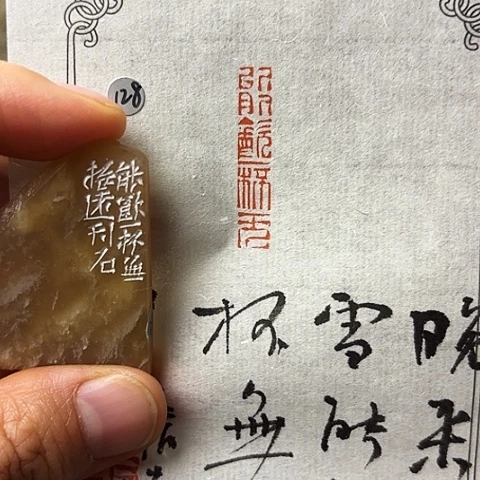 128
能飲一杯無
刊石
能飲一杯无
晚来
雪能
杯無